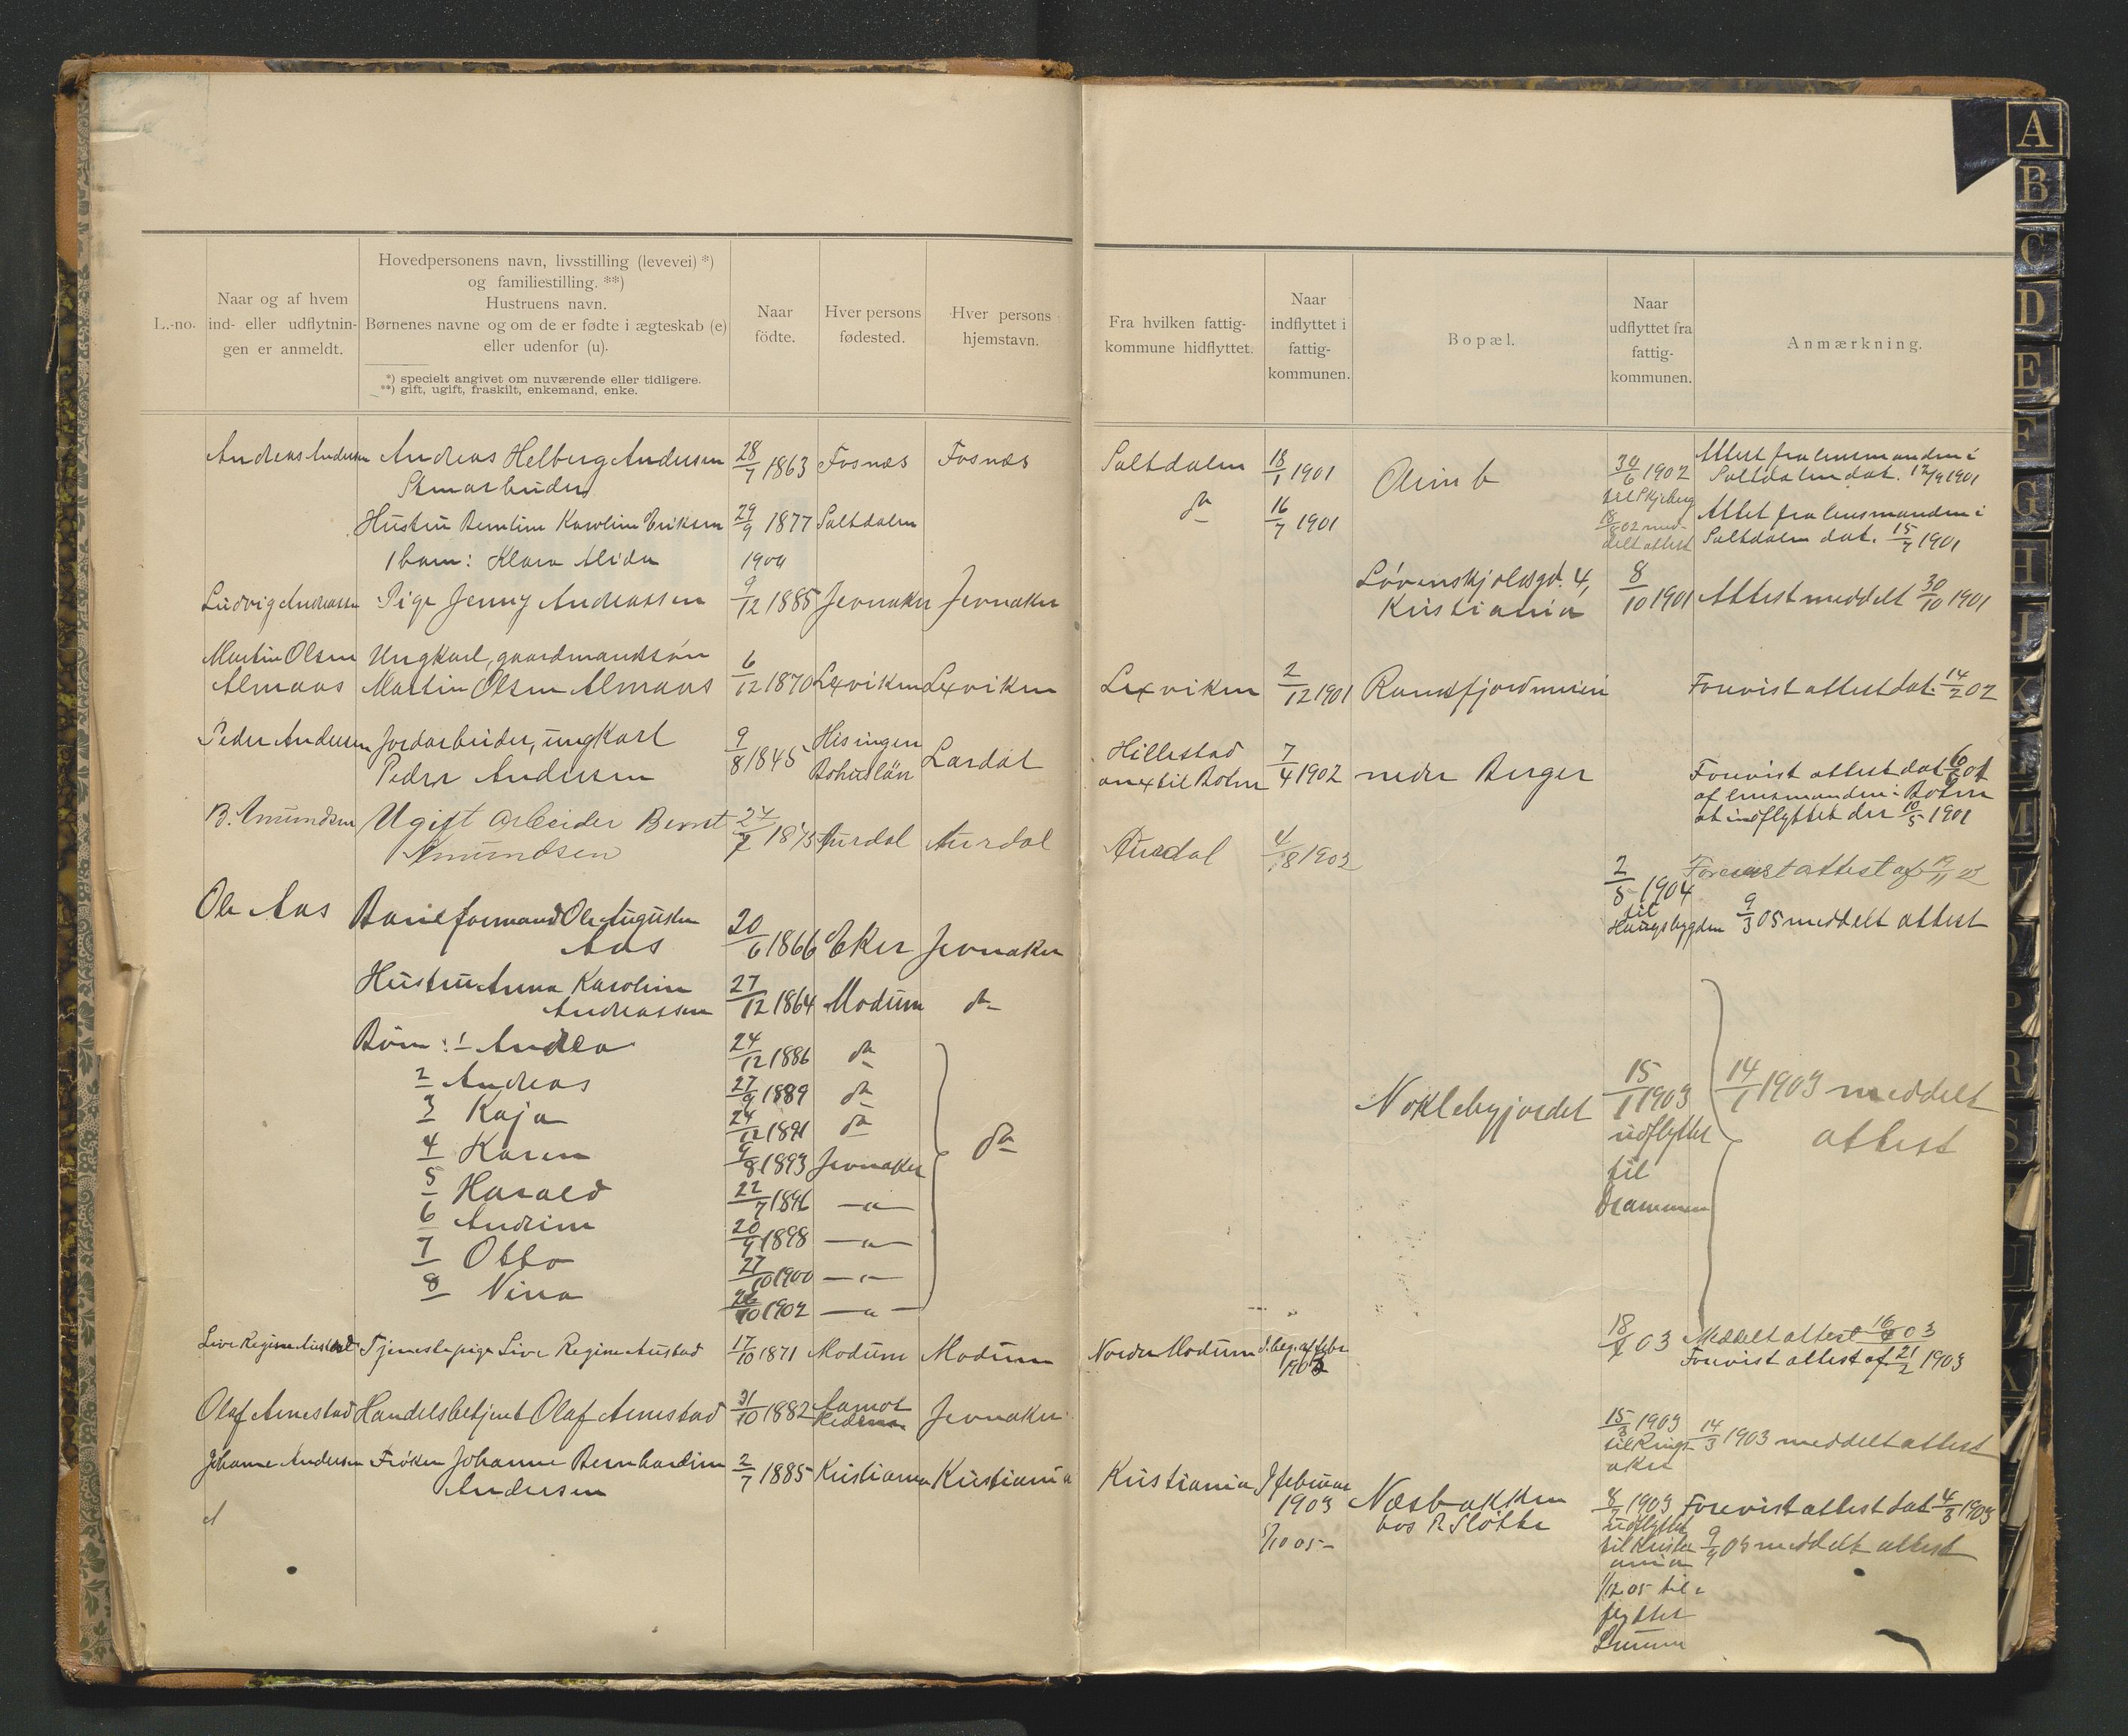 L.-no.
Naar og af hvem
ind- eller udflytnin-
gen er anmeldt.
Hovedpersonens navn, livsstilling (levevei) *)
og familiestilling. **)
Hustruens navn.
Børnenes navne og om de er fødte i ægteskab (e)
eller udenfor (u).
*) specielt angivet om nuværende eller tidligere.
**) gift, ugift, fraskilt, enkemand, enke.
Naar
födte.
Hver persons
fødested.
Hver persons
hjemstavn.
Fra hvilken fattig-
kommune hidflyttet.
Naar
indflyttet i
fattig-
kommunen.
Bopæl.
Naar
udflyttet fra
fattig-
kommunen.
Anmærkning.
A
B
C
D
E
F
G
H
J
K
L
M
N
O
P
R
S
T
U
V
X
Andreas Andersen Andreas Helberg Andersen 28/7 1863 Fosnæs Fosnæs Saltdalen 18/1 1901 30/6 1902 Attest fra lensmanden i
Stenarbeider til Skjeberg Saltdalen dat. 12/9 1901
Hustru Karoline Eriksen 29/9 1877 Saltdalen do 16/7 1901 18/8 02 med- Attest fra lensmanden i
delt attest Saltdalen dat. 15/7 1901
1 barn: Klara Alida 1900
Ludvig Andreassen Pige Jenny Andreassen 9/12 1885 Jevnaker Jevnaker Løvenskjoldsgd. 4, 8/10 1901 Attest meddelt 30/10 1901
Kristiania
Martin Olsen Ungkarl, gaardmandssøn
Almaas Martin Olsen Almaas 6/12 1870 Lexviken Lexviken Lexviken 2/12 1901 Randsfjordmeieri Forevist attest dat. 14/2 02
Peder Andersen Jordarbeider, ungkarl 9/8 1845 Hisingen Lardal Hillestad 7/4 1902 nedre Berger Forevist attest dat 6/6 01
Peder Andersen Bohuslän anex til Botne af lensmanden i Botne
at indflyttet der 10/5 1901
B. Amundsen Ugift arbeider Bernt 1875 Aurdal Aurdal Aurdal 4/8 1902 Forevist attest af
Amundsen
2/5 1904
til
Haugsbygden 9/3 05 meddelt attest
Ole Aas Baneformand Ole August
Aas 20/6 1866 Eker Jevnaker
Hustru Anna Karoline
Andreassen 27/12 1864 Modum do
Børn: 1 Andrea 24/12 1886 do
2 Andreas 27/9 1889 do
3 Kaja 24/12 1891 do
4 Karen 9/8 1893 Jevnaker do
5 Harald 22/7 1896 — " —
6 Andrine 20/9 1898 — " —
7 Otto 27/10 1900 — " —
8 Nina 26/10 1902 — " —
Noklebyjordet 15/1 1903 14/1 1903 meddelt
udflyttet attest
til
Drammen
Live Regine Austad Tjenestepige Live Regine Austad 17/10 1871 Modum Modum Nordre Modum I beg. af febr 18/ 03 Meddelt attest 16/ 03
1903 Forevist attest af 21/2 1903
Olaf Arnestad Handelsbetjent Olaf Arnestad 31/10 1882 Aamot Jevnaker 15/3 1903 14/3 1903 meddelt attest
Hedem. til Rings-
aker
Johanne Andersen Frøken Johanne Bernhardine 2/7 1885 Kristiania Kristiania Kristiania I februar
Andersen 1903 Næsbakken 8/ 1903 Forevist attest dat 4/3 1903
hos R. Sløtte udflyttet
1/10 05 – til Kristi- 9/9 03 meddelt attest
ania
1/12 05 til-
flyttet
Lunner